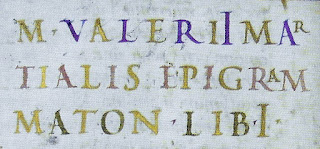 M · VALERII MAR
TIALIS EPIGRAM
MATON · LIB · I